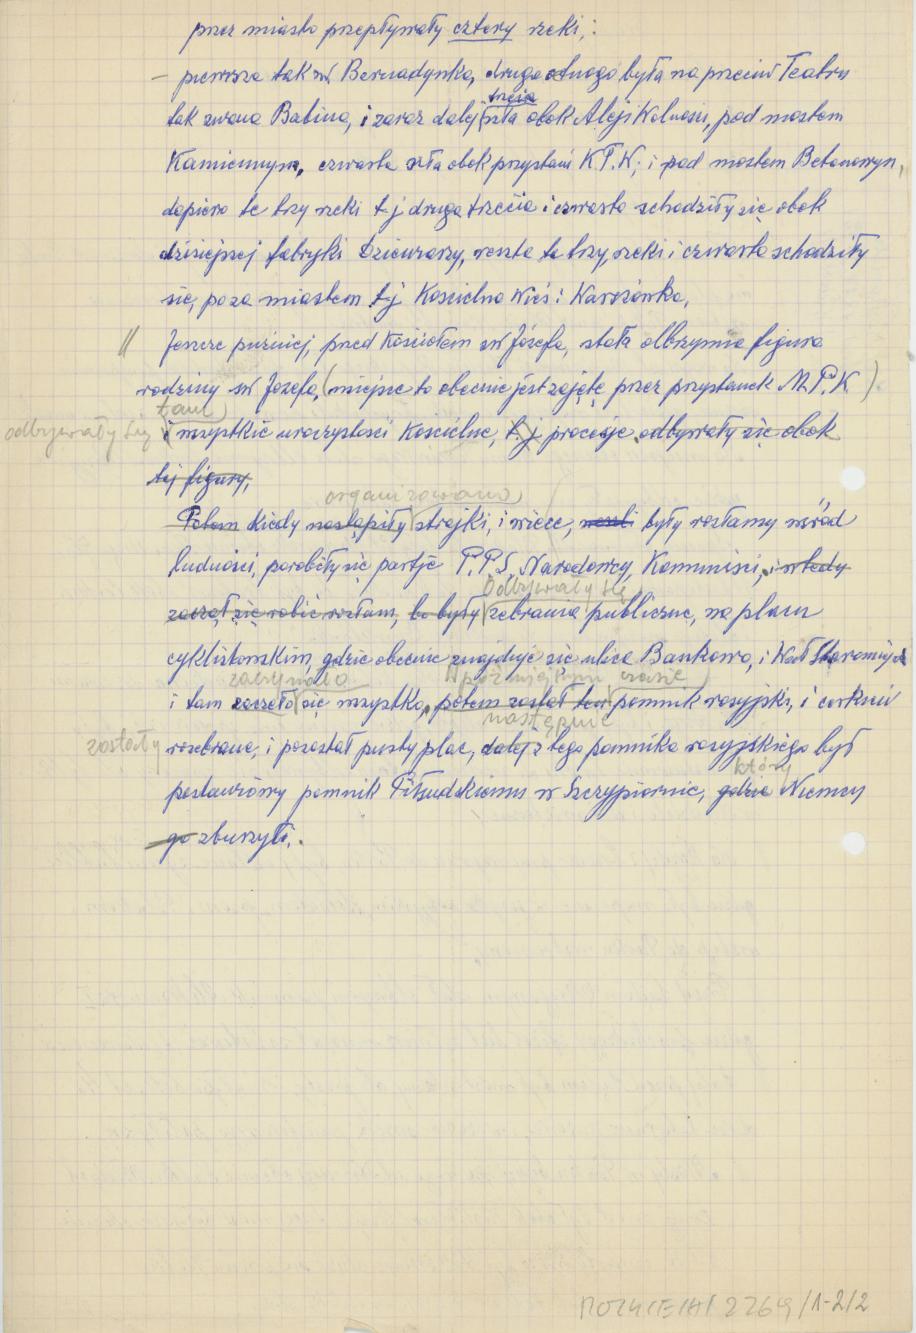 przez miasto przepływały cztery rzeki,:
– pierwsza tak zw Bernadynka, druga odnoga była na przeciw Teatru
trzcia
tak zwana Babina, i zaraz dalej szła obok Aleji Wolności, pod mostem
Kamiennym, czwarta szła obok przystani K.T.W; i pod mostem Betonowym,
dopiero te trzy rzeki t.j druga trzecia i czwarta schodziły się obok
dzisiejszej fabryki Dziewiarzy, reszta te trzy, rzeki i czwarta schodziły
się, poza miastem t.j Kościelna Wieś i Warszówka,
// Jeszcze puźniej, przed Kościołem św Józefa, stała olbrzymia figura
rodziny św Jozefa, (miejsce to obecnie jest zajęte przez przystanek M.P.K.)
tam
odbywały się i wszystkie uroczystości Kościelne, t.j procesje odbywały się obok
tej figury,
organizowano
Potem kiedy nastąpiły strajki, i wiece, były rozłamy wśród
ludności, porobiły się partje P.P.S, Narodowcy, Kommuniści, i wtedy
Odbywały się
zaczął się robić rozłam, bo były zebrania publiczne, na placu
cyklistowskim, gdzie obecnie znajduje się ulica Bankowa, i
zaczynało W późniejszym czasie
i tam zaczeło się wszystko, potem został ten pomnik rosyjski, i cerkiew
następnie
zostały rozebrane, i pozostał pusty plac, dalej z tego pomnika rosyjskiego był
który
postawiony pomnik Piłsudskiemu w Szczypiornie, gdzie Niemcy
go zburzyli.
2269/1-2/2